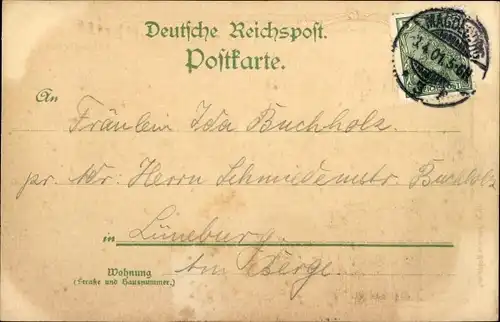 Deutsche Reichspost.
Postkarte.
MAGDEBURG
1.4.01. 5-6N
An
Fräulein Ida Buchholz.
pr. Adr. Herrn Schmiedemstr. Buchholz
in Lüneburg.
Am Berge.
Wohnung
(Straße und Hausnummer.)